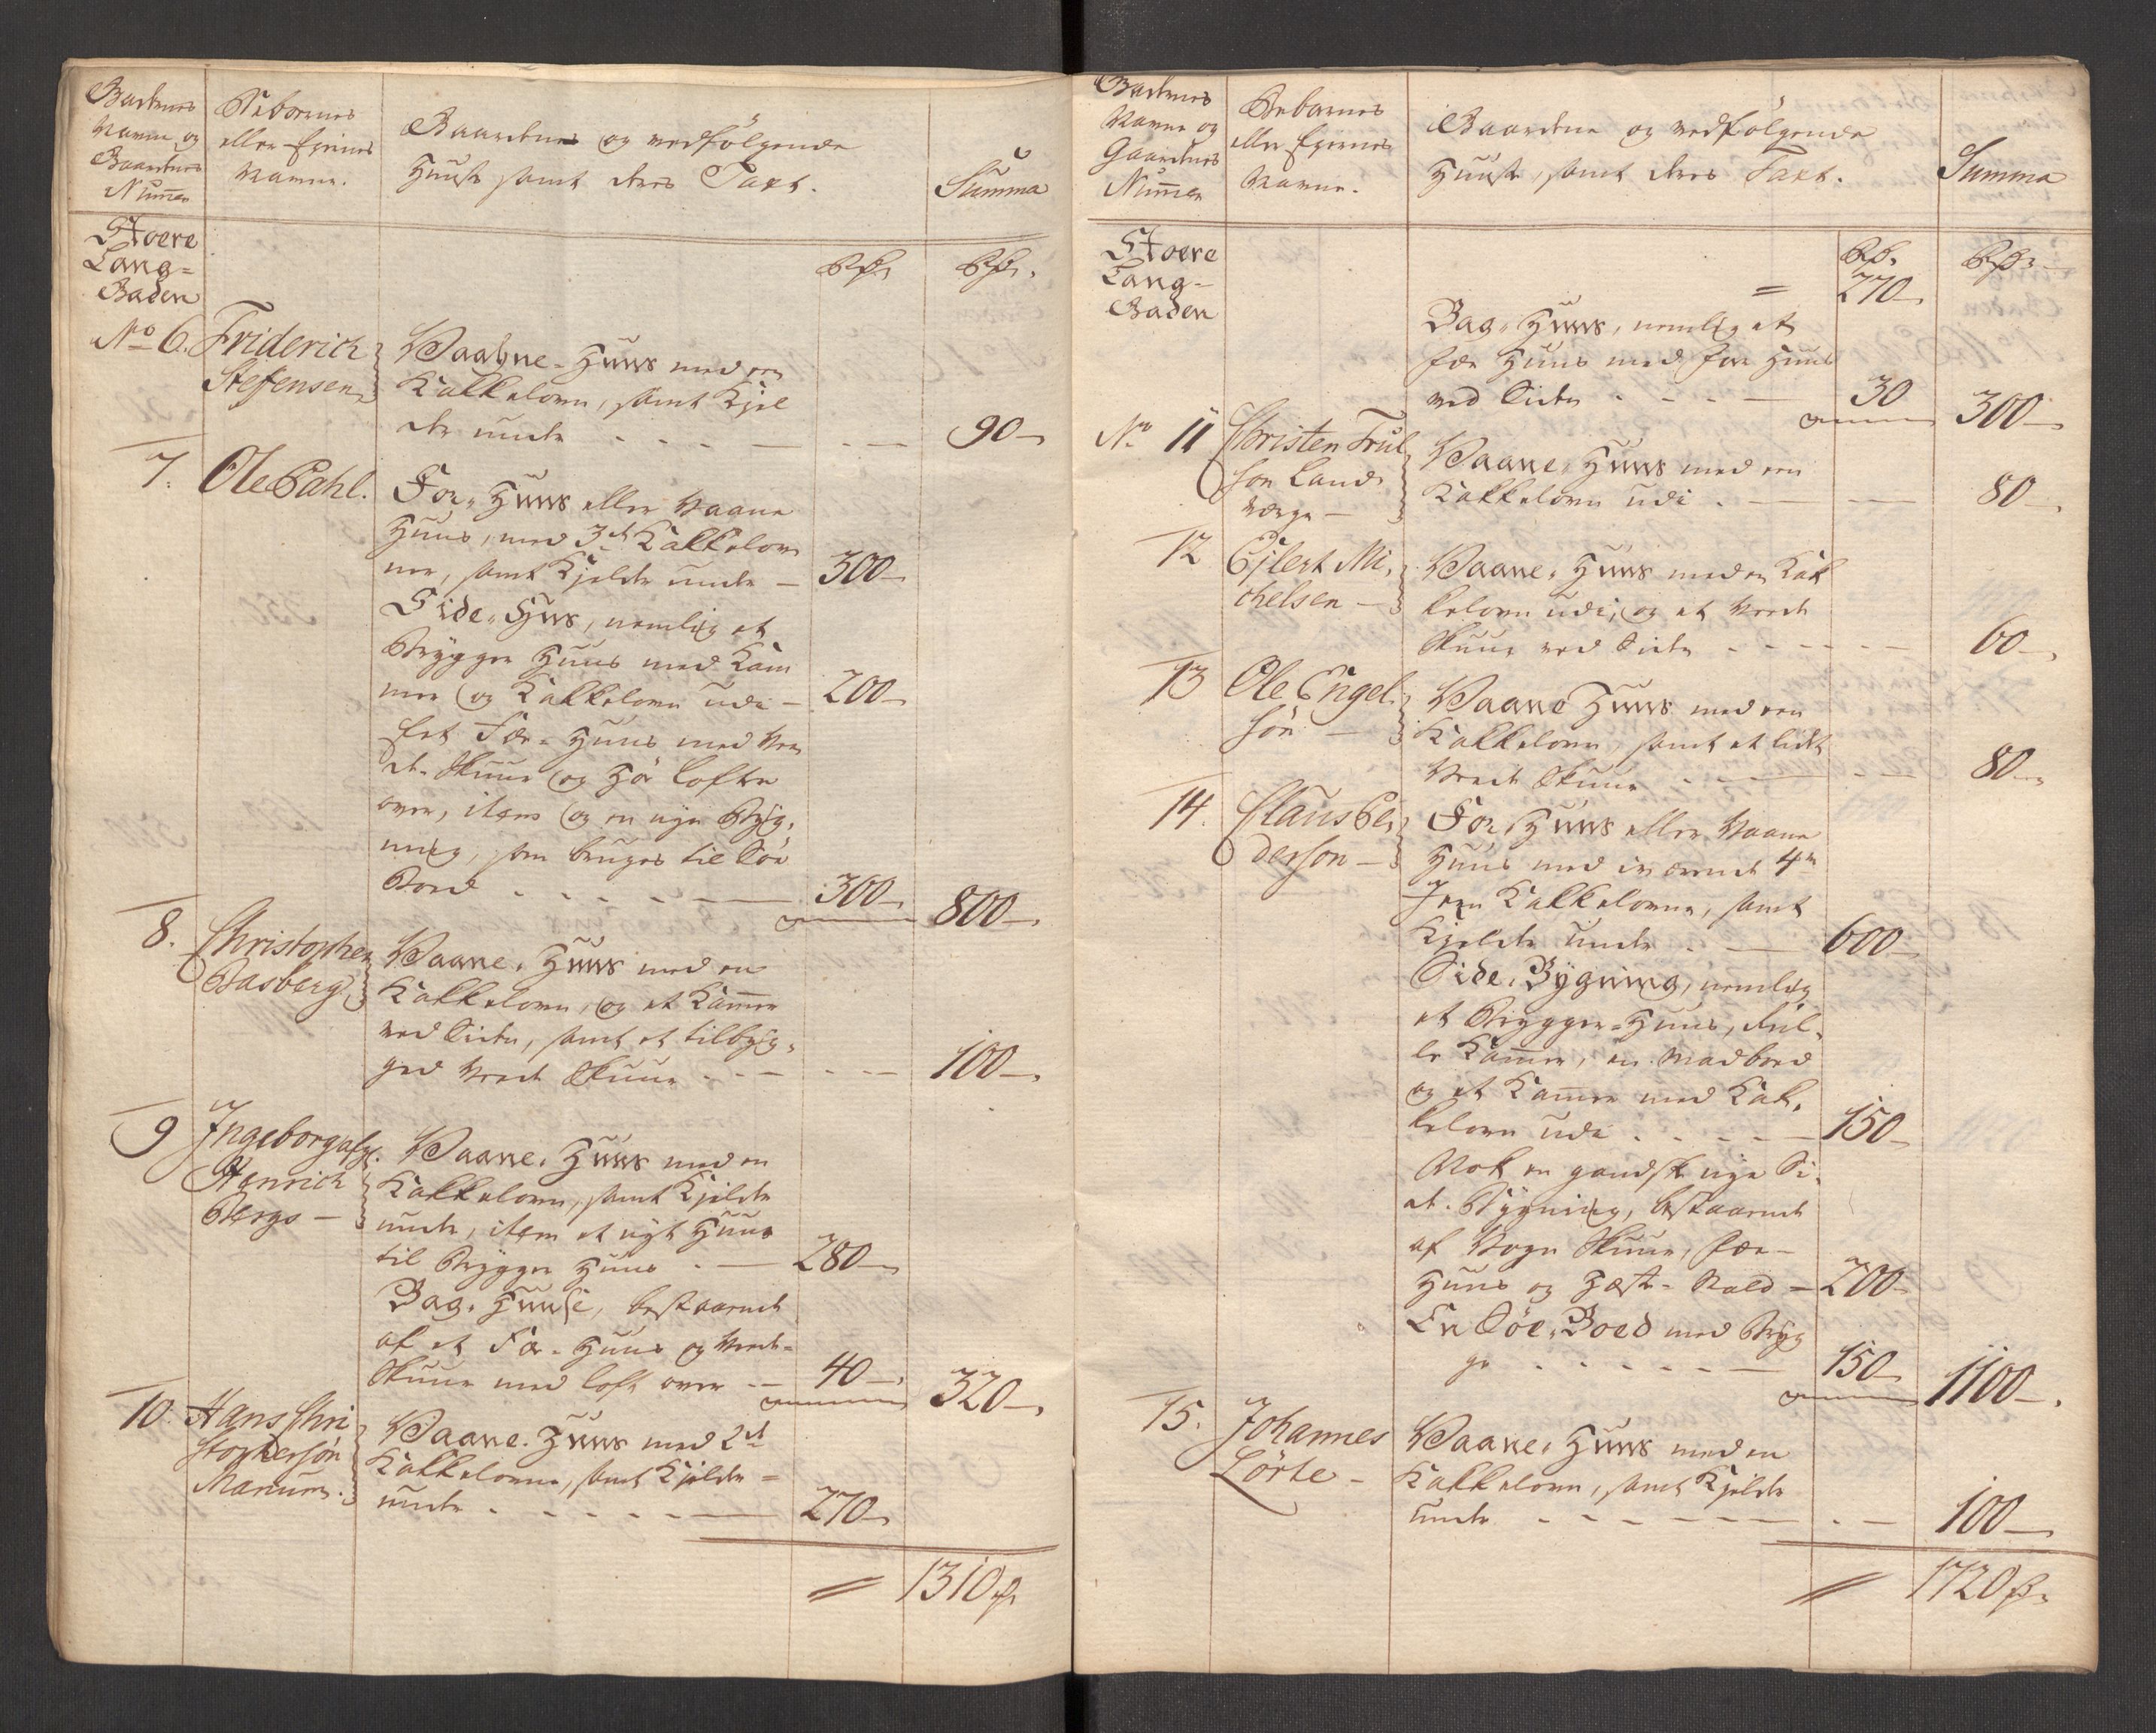 Gadernes
Navne og
Gaardenes
Numer
Beboernes
eller Ejernes
Navne.
Gaardene og medfölgende
Huuse samt deres Taxt.
Summa
Stoere
Lang-
Gaden
Rdr.
Rdr.
No 6. Friderich
Stefensen
Vaahne-Huus med een
Kakkelovn, samt Kjel
der under - - - 90-
7. Ole Pahl.
For-Huus eller Vaane
Huus, med 3de Kakkelov
ner, samt Kjelder under - 300-
Side-Huus, nemlig et
Brygger Huus med Kam
mer og Kakkelovn udi - 200-
Eet Fæe-Huus med Ve
de-Skuur og Höe Lofter
over, item og en nye Byg,
ning, som bruges til Söe
Boed - - - 300- 800-
8. Christopher
Basberg
Vaane-Huus med en
Kakkelovn, og et Kammer
ved Siden, samt et tilbyg,
get Vede Skuur - - - 100-
9 Ingeborg afg.
Henrich
Bergs -
Vaane-Huus med en
Kakkelovn, samt Kjelder
under, item et nyt Huus
til Brygger Huus - 280-
Bag-Huuse, bestaaende
af et Fæe-Huus og Vede-
Skuur med Loft over - 40- 320-
10. Hans Chri
stophersön
Manum.
Vaane-Huus med 2de
Kakkelovne, samt Kjelder
under - - - 270-
= 1310 r
Gadernes
Navne og
Gaardenes
Numer
Beboernes
eller Ejernes
Navne.
Gaardene og medfölgende
Huuse, samt deres Taxt.
Summa
Stoere
Lang-
Gaden
Rdr.
Rdr.
= 270-
Bag-Huus, nemlig et
Fæe Huus med Foer Huus
ved Siden - - - 30 300-
No 11 Christen Trul
sen Land
værge -
Vaane-Huus med een
Kakkelovn udi - - 80-
12 Ejlert Mi,
chelsen -
Vaane-Huus med en Kak
kelovn udi, og et Vede
Skuur ved Siden - - - 60-
13 Ole Engel
sön -
Vaane Huus med een
Kakkelovn, samt et lidet
Vede Skuur - - - 80-
14. Claus Pe,
derson -
For-Huus eller Vaane
Huus med iværende 4re
Jern Kakkelovne, samt
Kjelder under - - 600-
Side-Bygning, nemlig
et Brygger-Huus, Rul-
le Kammer, en Madboed
og et Kammer med Kak,
kelovn udi - - - 150-
Nok en gandske nye Si,
de-Bygning, bestaaende
af Vogn Skuur, Fæe-
Huus og Hæste-Stald = 200-
En Söe-Boed med Bryg
ge - - - 150- 1100-
15. Johannes
Lörte -
Vaane-Huus med en
Kakkelovn, samt Kjelder
under - - - 100-
= 1720 r